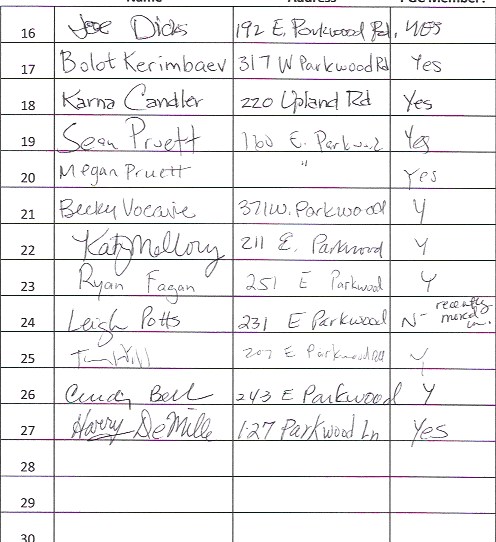 Name Address
16 Joe Dicks 192 E. Parkwood Rd. YES
17 Bolot Kerimbaev 317 W Parkwood Rd Yes
18 Karna Candler 220 Upland Rd Yes
19 Sean Pruett 160 E. Parkwood Yes
20 Megan Pruett " Yes
21 Becky 371 W. Parkwood Y
22 Katy Mallory 211 E. Parkwood Y
23 Ryan Fagan 251 E Parkwood Y
24 Leigh Potts 231 E Parkwood N- recently moved in.
25 E Parkwood Rd Y
26 Cindy Bell 243 E Parkwood Y
27 Harry DeMille 127 Parkwood Ln Yes
28
29
30